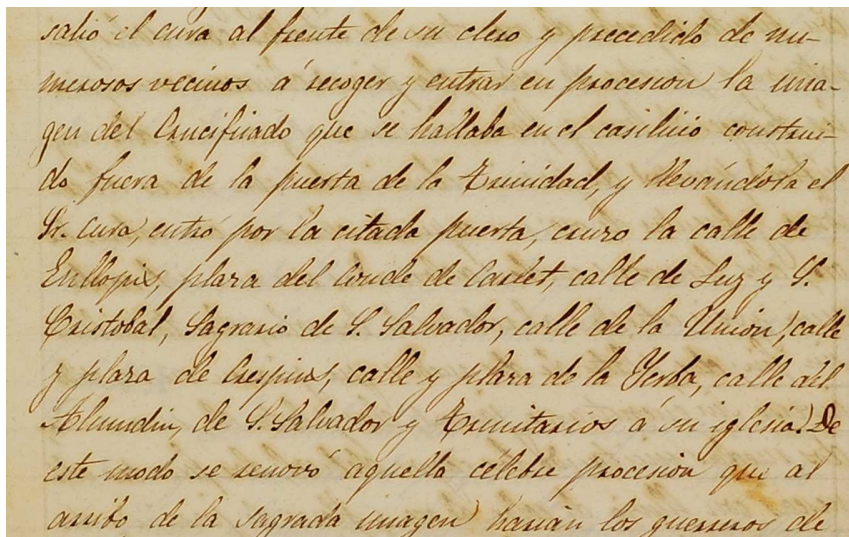 salió el cura al frente de su clero y precedido de nu-
merosos vecinos á recoger y entrar en procesion la ima-
gen del Crucifixado que se hallaba en el casilicio construi-
do fuera de la puerta de la Trinidad, y llevándola el
Sr. Cura, entró por la citada puerta, cruzo la calle de
Enllopis, plaza del Conde de Carlet, calle de Luz y S.
Cristobal, Sagrario de S. Salvador, calle de la Union, calle
y plaza de Crespins, calle y plaza de la Yerba, calle del
Almudin, de S. Salvador y Trinitarios á su iglesia. De
este modo se renovó aquella célebre procesion que al
arribo de la sagrada imagen harian los guerreros de